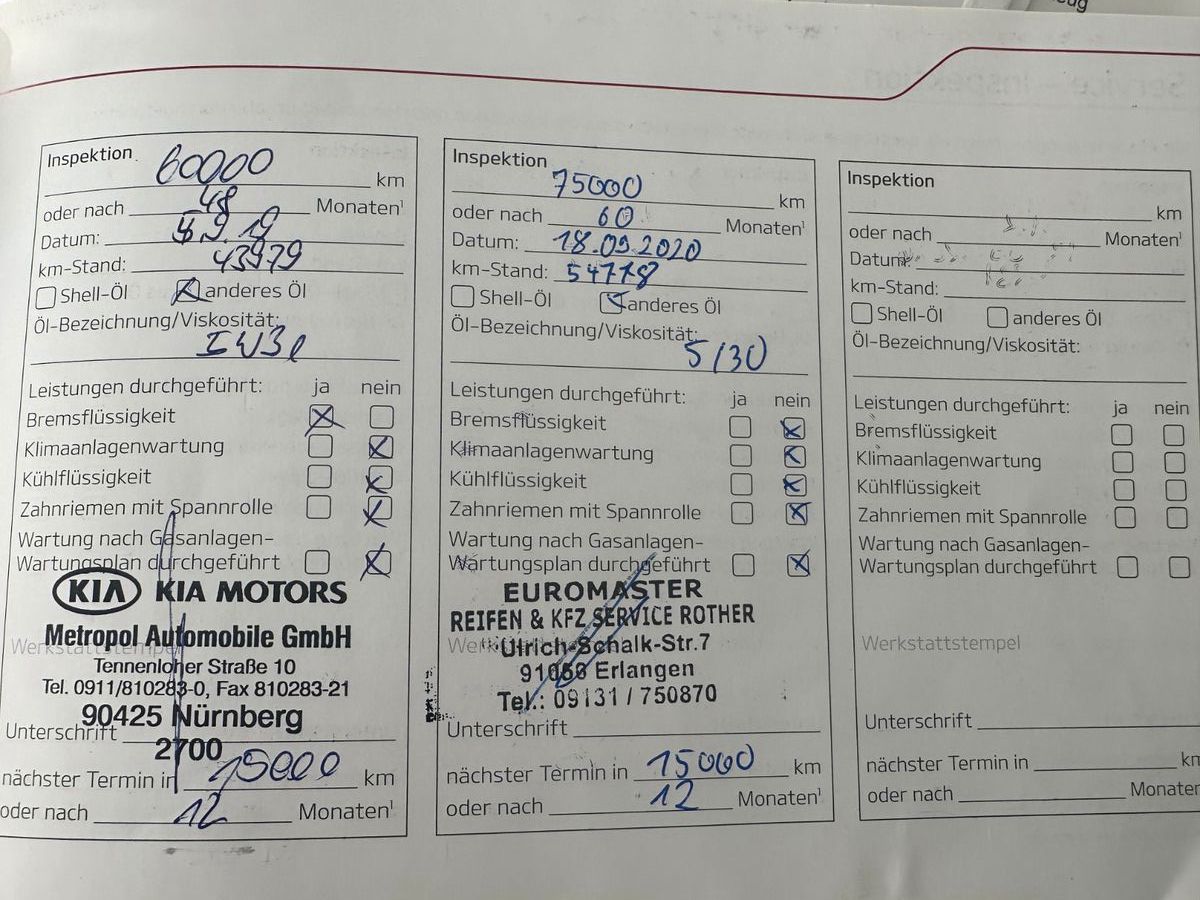 Inspektion 60000 km
oder nach 48 Monaten¹
Datum: 9.19
km-Stand: 43979
Shell-Öl anderes Öl
Öl-Bezeichnung/Viskosität:
Leistungen durchgeführt: ja nein
Bremsflüssigkeit
Klimaanlagenwartung
Kühlflüssigkeit
Zahnriemen mit Spannrolle
Wartung nach Gasanlagen-
Wartungsplan durchgeführt
KIA KIA MOTORS
Metropol Automobile GmbH
Werkstattstempel
Tennenloher Straße 10
Tel. 0911/810283-0, Fax 810283-21
90425 Nürnberg
Unterschrift
2700
nächster Termin in 15000 km
oder nach 12 Monaten¹
Inspektion
75000 km
oder nach 60 Monaten¹
Datum: 18.09.2020
km-Stand: 54778
Shell-Öl anderes Öl
Öl-Bezeichnung/Viskosität:
5/30
Leistungen durchgeführt: ja nein
Bremsflüssigkeit
Klimaanlagenwartung
Kühlflüssigkeit
Zahnriemen mit Spannrolle
Wartung nach Gasanlagen-
Wartungsplan durchgeführt
EUROMASTER
REIFEN & KFZ SERVICE ROTHER
Ulrich-Schalk-Str.7
91056 Erlangen
Tel.: 09131 / 750870
Unterschrift
nächster Termin in 15000 km
oder nach 12 Monaten¹
Inspektion
km
oder nach Monaten¹
Datum:
km-Stand:
Shell-Öl anderes Öl
Öl-Bezeichnung/Viskosität:
Leistungen durchgeführt: ja nein
Bremsflüssigkeit
Klimaanlagenwartung
Kühlflüssigkeit
Zahnriemen mit Spannrolle
Wartung nach Gasanlagen-
Wartungsplan durchgeführt
Werkstattstempel
Unterschrift
nächster Termin in km
oder nach Monaten